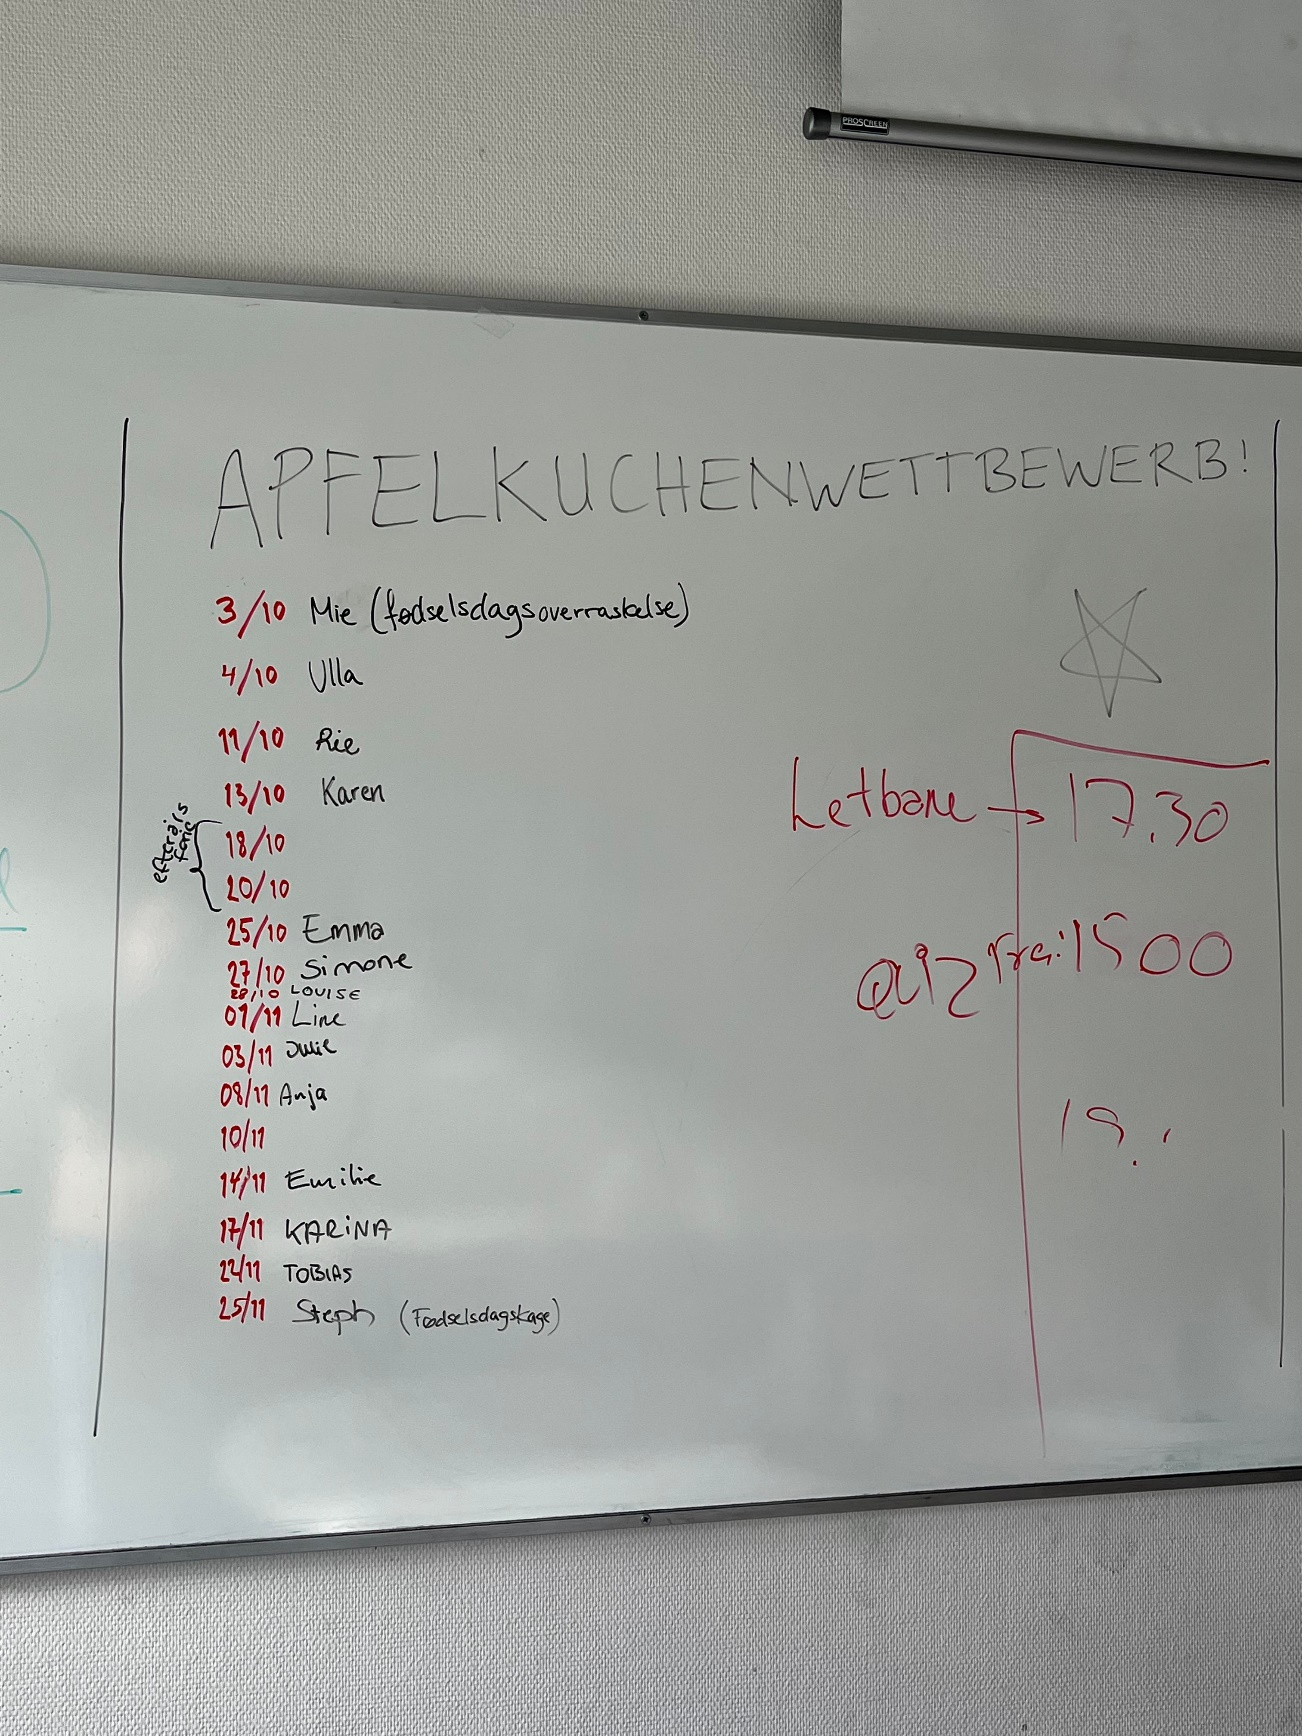 PROSCREEN
APFELKUCHENWETTBEWERB!
3/10 Mie (fødselsdagsoverraskelse)
4/10 Ulla
11/10 Rie
13/10 Karen
efterårs
ferie
18/10
20/10
25/10 Emma
27/10 Simone
28/10 LOUISE
01/11 Line
03/11 Julie
08/11 Anja
10/11
14/11 Emilie
17/11 KARINA
22/11 TOBIAS
25/11 Steph (Fødselsdagskage)
Letbane → 17.30
Quiz fra: 1500